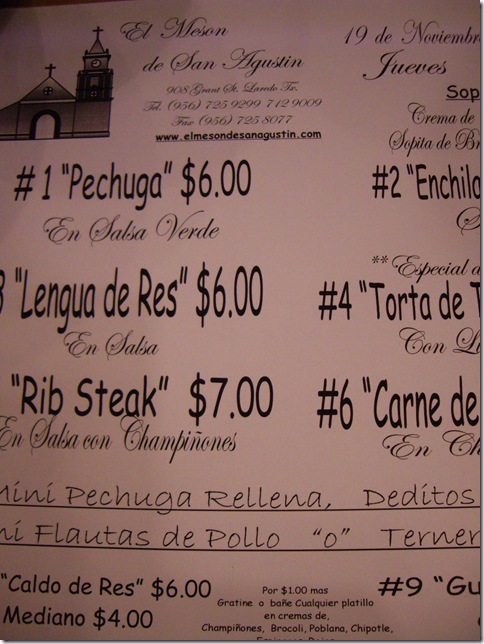 El Meson
de San Agustin
908 Grant St. Laredo Tx.
Tel. (956) 725 9299 712 9009
Fax (956) 725 8077
www.elmesondesanagustin.com
19 de Noviembre
Jueves
Sop
Crema de
Sopita de Br
#1 "Pechuga" $6.00
En Salsa Verde
#2 "Enchila
S
3 "Lengua de Res" $6.00
En Salsa
**Especial d
#4 "Torta de T
Con Lu
"Rib Steak" $7.00
En Salsa con Champiñones
#6 "Carne de
En Ch
Mini Pechuga Rellena, Deditos
ni Flautas de Pollo "o" Terner
"Caldo de Res" $6.00
Mediano $4.00
Por $1.00 mas
Gratine o bañe Cualquier platillo
en cremas de,
Champiñones, Brocoli, Poblana, Chipotle,
#9 "Gu